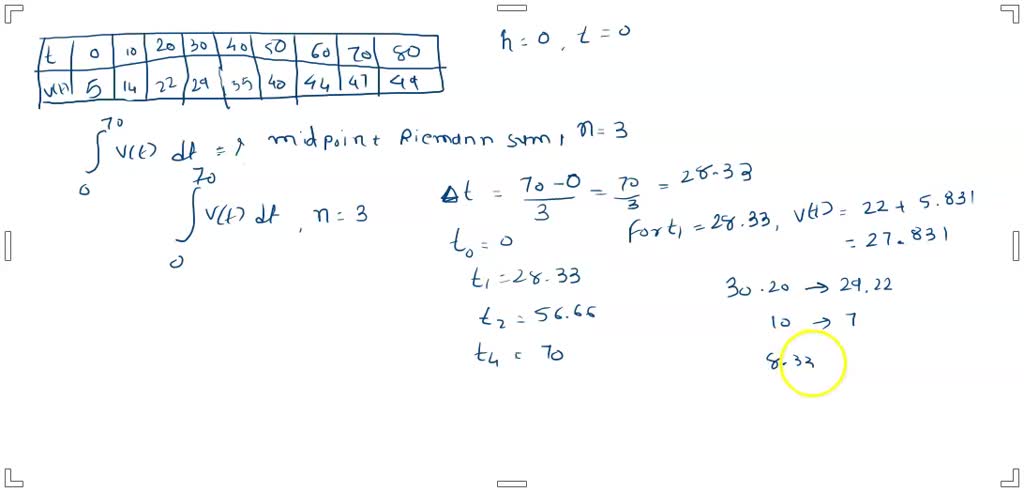 t 0 10 20 30 40 50 60 70 80
v(t) 5 14 22 29 35 40 44 47 49
h=0, t=0
∫₀⁷⁰ v(t) dt = ? midpoint Riemann sum, n=3
∫₀⁷⁰ v(t) dt, n=3
Δt = 70-0/3 = 70/3 = 28.33
t₀=0
t₁=28.33
t₂=56.66
t₄ = 70
for t₁ = 28.33, v(t) = 22 + 5.831
= 27.831
30.20 → 29.22
10 → 7
8.33